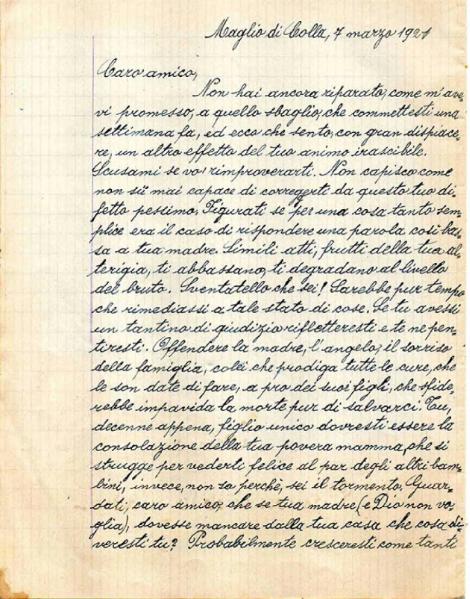 Maglio di Colla, 7 marzo 1921
Caro amico,
Non hai ancora riparato, come m'ave
vi promesso, a quello sbaglio, che commettesti una
settimana fa, ed ecco che sento, con gran dispiace
re, un altro effetto del tuo animo irascibile.
Scusami se vo' rimproverarti. Non capisco come
non sii mai capace di correggerti da questo tuo di
fetto pessimo. Figurati se per una cosa tanto sem
plice era il caso di rispondere una parola così bas
sa a tua madre. Simili atti, frutti della tua al
terigia, ti abbassano, ti degradano al livello
del bruto. Sventatello che sei! Sarebbe pur tempo
che rimediassi a tale stato di cose. Se tu avessi
un tantino di giudizio rifletteresti e te ne pen
tiresti. Offendere la madre, l'angelo, il sorriso
della famiglia, colei che prodiga tutte le cure, che
le son date di fare, a pro dei suoi figli, che sfide
rebbe impavida la morte pur di salvarci! Tu,
decenne appena, figlio unico dovresti essere la
consolazione della tua povera mamma, che si
strugge per vederti felice al par degli altri bam
bini, invece, non so perchè, sei il tormento. Guar
dati, caro amico, che se tua madre (e Dio non vo
glia), dovesse mancare dalla tua casa che cosa di
veresti tu? Probabilmente cresceresti come tanti